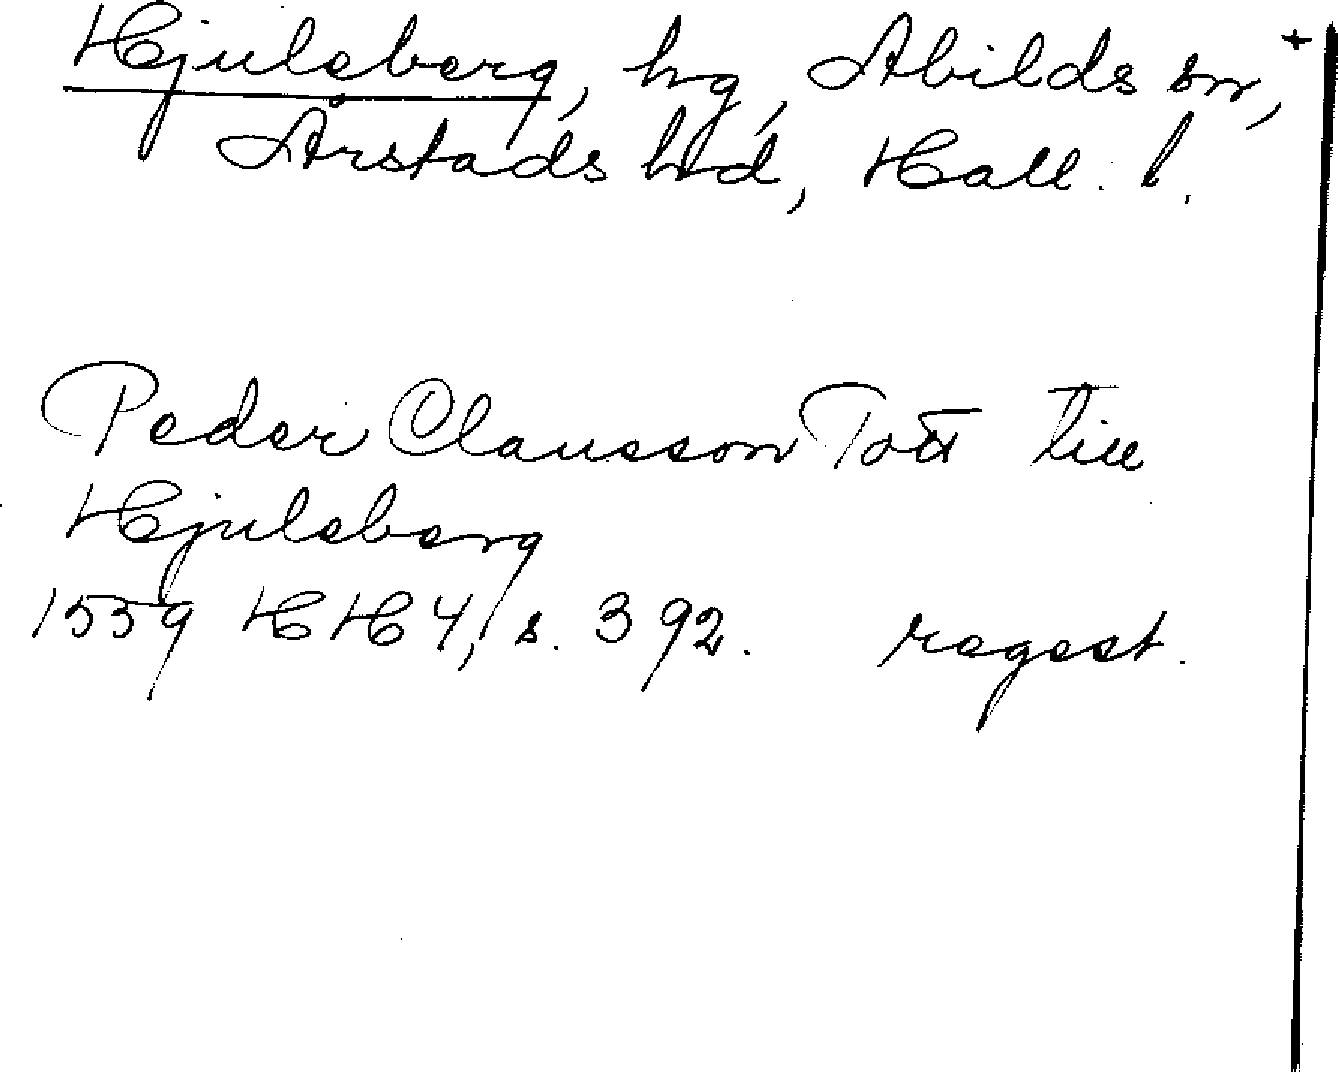 Hjuleberg, hg, Abilds sn, +
Årstads hd, Hall. l.
Peder Clausson Tott till
Hjuleberg
1559 HH 4, s. 392. regest.